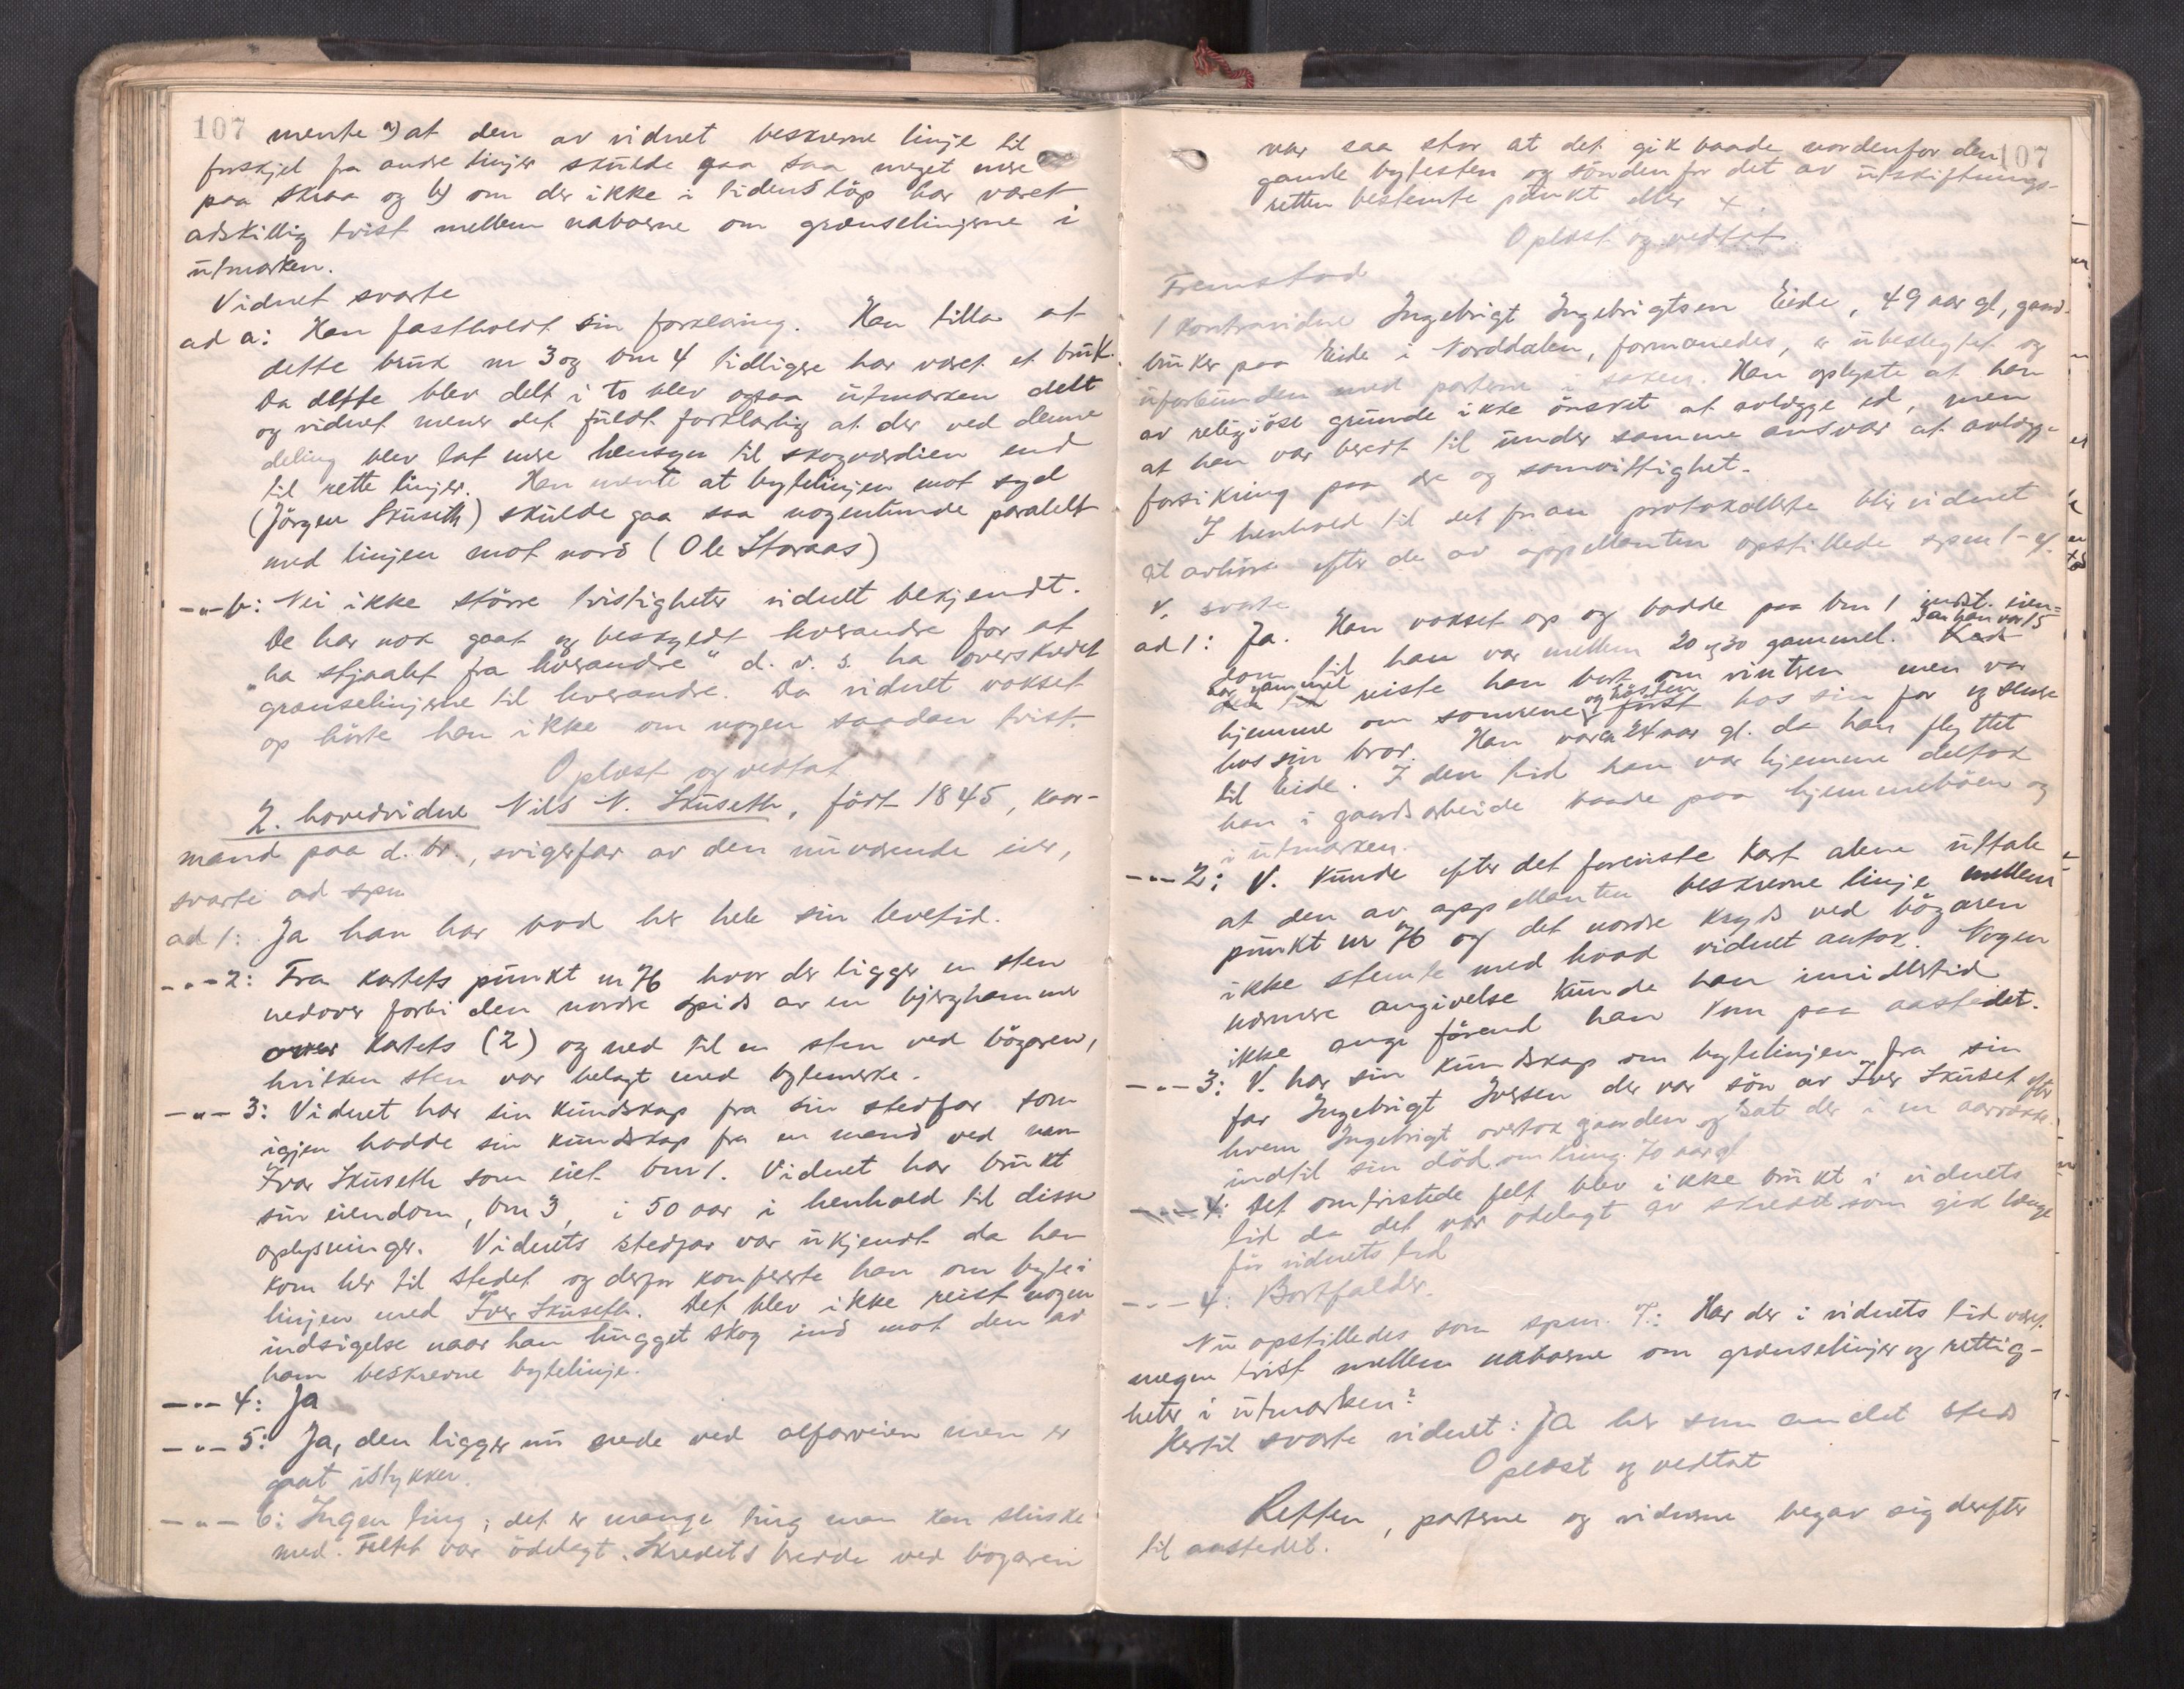 107
mente a) at den av vidnet beskrevne linje til
forskjel fra andre linjer skulde gaa saa meget mere
paa skraa og b) om der ikke i tidens löp har været
adskillig tvist mellem naboerne om grænselinjerne i
utmarken.
Vidnet svarte
ad a: Han fastholdt sin forklaring. Han tilla at
dette bruk nr 3 og bnr 4 tidligere har været et bruk.
Da dette blev delt i to blev ogsaa utmarken delt
og vidnet mener det fuldt forklarlig at der ved denne
deling blev tat mere hensyn til skogværdien end
til rette linjer. Han mente at bytelinjen mot syd
(Jörgen Skuseth) skulde gaa saa nogenlunde paralelt
med linjen mot nord (Ole Storaas)
-"- b: Nei ikke större tvistigheter vidnet bekjendt.
De har nok gaat og beskyldt hverandre for at
"ha stjaalet fra hverandre" d. v. s. ha overskredet
grænselinjerne til hverandre. Da vidnet vokset
op hörte han ikke om nogen saadan tvist.
Oplæst og vedtat
2. hovedvidne Nils N. Skuseth, födt 1845, kaar-
mand paa d. br., svigerfar av den nuværende eier,
svarte ad spm
ad 1: Ja han har bod her hele sin levetid.
-"- 2: Fra kartets punkt nr 76 hvor der ligger en sten
nedover forbi den nordre spids av en bjerghammer
over kartets (2) og ned til en sten ved bögaren,
hvilken sten var belagt med bytemerke.
-"- 3: Vidnet har sin kundskap fra sin stedfar som
igjen hadde sin kundskap fra en mand ved navn
Ivar Skuseth som eiet bnr 1. Vidnet har brukt
sin eiendom, bnr 3, i 50 aar i henhold til disse
oplysninger. Vidnets stedfar var ukjendt da han
kom her til stedet og derfor konfererte han om byte-
linjen med Iver Skuseth. Det blev ikke reist nogen
indsigelse naar han hugget skog ind mot den av
ham beskrevne bytelinje.
-"- 4: Ja
-"- 5: Ja, den ligger nu nede ved alfarveien men er
gaat istykker.
-"- 6: Ingen ting; det er mange ting man kan sluske
med. Feltet var ödelagt. Skredets bredde ved bögaren
107
var saa stor at det gik baade nordenfor den
gamle bytesten og söndenfor det av utskiftnings-
retten bestemte punkt eller x.
Oplæst og vedtat.
Fremstod
1 kontravidne Ingebrigt Ingebrigtsen Eide, 49 aar gl, gaard-
bruker paa Eide i Norddalen, formanedes, er ubeslegtet og
uforbunden med parterne i saken. Han oplyste at han
av religiöse grunde ikke önsket at avlægge ed, men
at han var beredt til under samme ansvar at avlægge
forsikring paa ære og samvittighet.
I henhold til det foran protokollerte blir vidnet
at avhöre efter de av appellanten opstillede spm 1-4.
V. svarte
ad 1: Ja. Han vokset op og bodde paa bnr 1 indst. eien-
dom til han var mellem 20 og 30 gammel. Fra han var 15
aar gammel reiste han bort om vintren men var
hjemme om somrene og hösten hos sin far og senere
hos sin bror. Han var ca 24 aar gl. da han flyttet
til Eide. I den tid han var hjemme deltok
han i gaardsarbeide baade paa hjemmeböen og
i utmarken.
-"- 2: V. kunde efter det foreviste kart alene uttale
at den av appellanten beskrevne linje mellem
punkt nr 76 og det nordre kryds ved bögaren
ikke stemte med hvad vidnet antok. Nogen
nærmere angivelse kunde han imidlertid
ikke angi förend han kom paa aastedet.
-"- 3: V. har sin kundskap om bytelinjen fra sin
far Ingebrigt Iversen der var sön av Iver Skuset efter
hvem Ingebrigt overtok gaarden og sat der i en aarrække
indtil sin död omkring 70 aar gl
-"- 4: Det omtvistede felt blev ikke brukt i vidnets
tid da det var ödelagt av skredet som gik længe
för vidnets tid
-"- 4: Bortfalder.
Nu opstilledes som spm. 7: Har der i vidnets tid været
megen tvist mellem naboerne om grænselinjer og rettig-
heter i utmarken?
Hertil svarte vidnet: Ja her som andet steds
Oplæst og vedtat
Retten, parterne og vidnerne begav sig derefter
til aastedet.